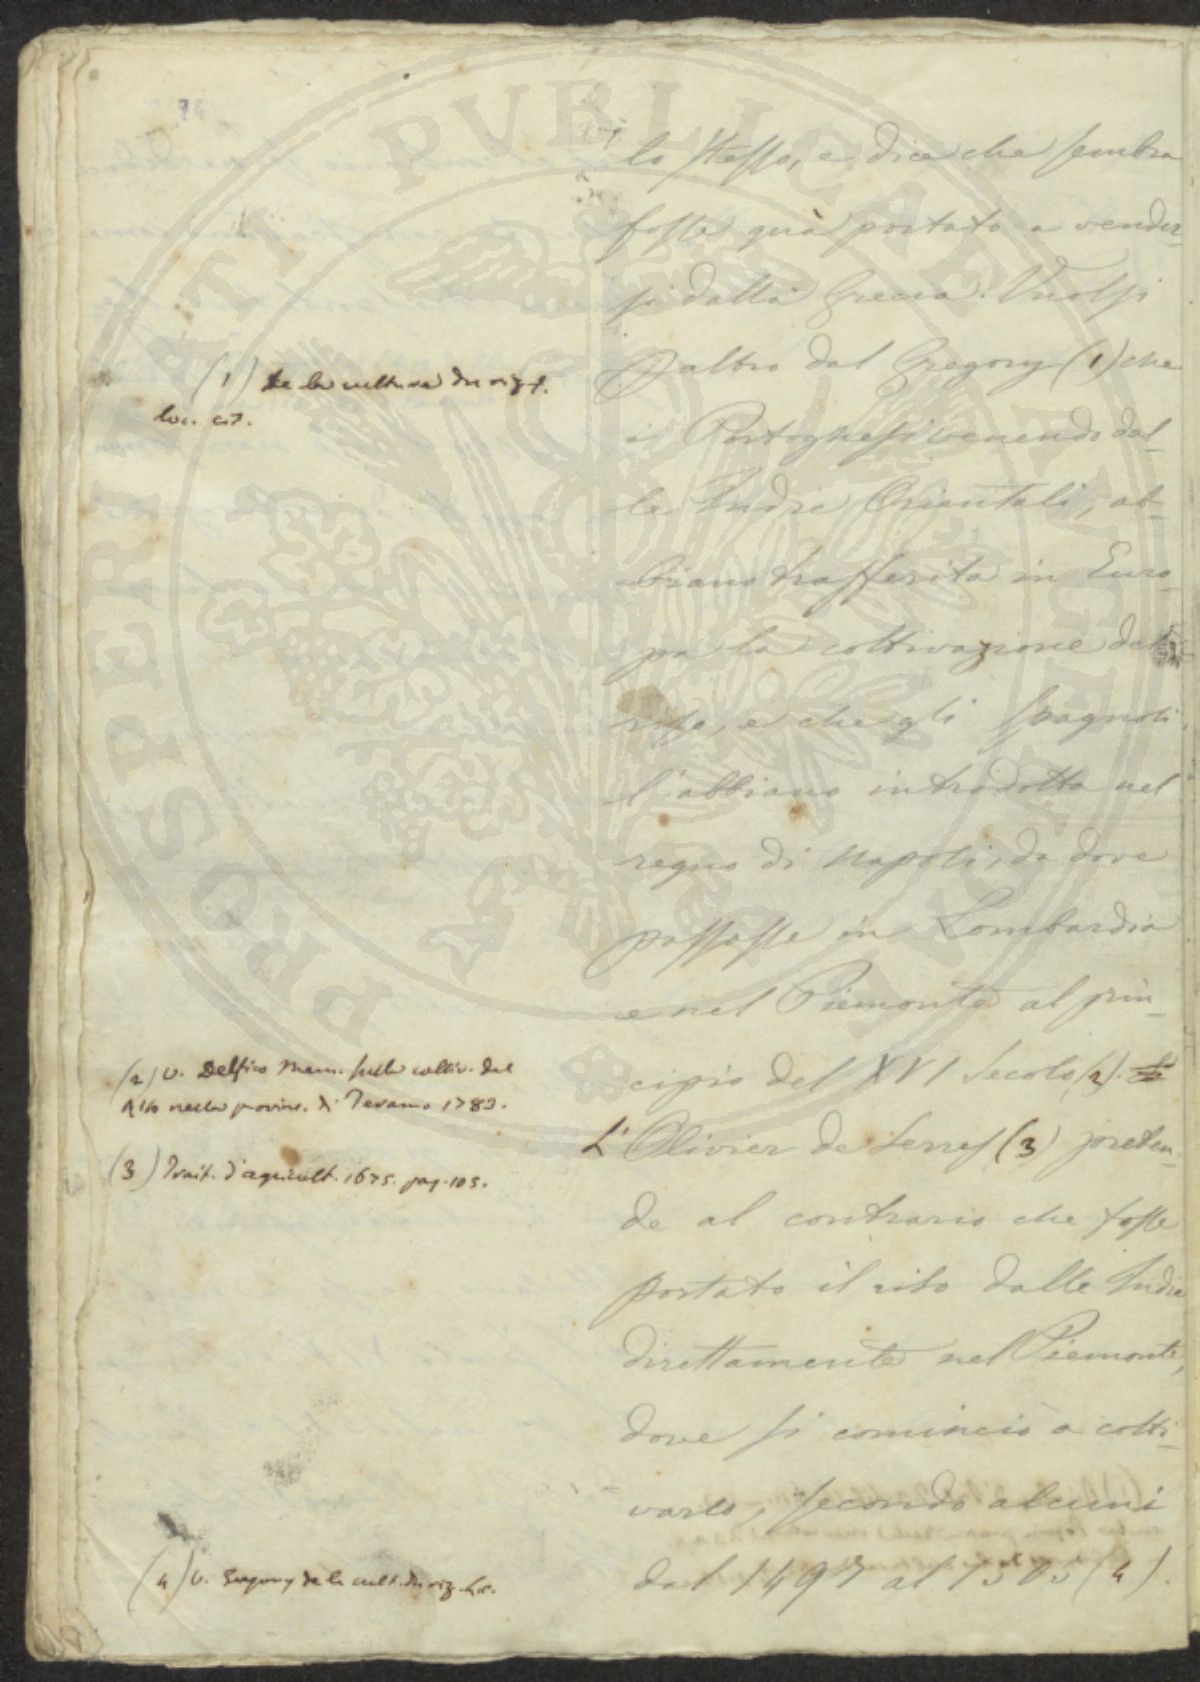 lo stesso, e dice che sembra
fosse quà portato a vender-
si dalla Grecia. Vuolsi
d'altro dal Gregory (1) che
i Portoghesi venendo dal-
le Indie Orientali, ab-
biano trasferita in Euro-
pa la coltivazione del
riso, e che gli Spagnoli
l'abbiano introdotta nel
regno di Napoli, da dove
passasse in Lombardia
e nel Piemonte al prin-
cipio del XVI Secolo (2).
L'Olivier de Serres (3) preten-
de al contrario che fosse
portato il riso dalle Indie
direttamente nel Piemonte,
dove si cominciò a colti-
varlo, secondo alcuni
dal 1497 al 1505 (4).
(1) De la culture du riz &.
loc. cit.
(2) V. Delfico Mem. sulla coltiv. del
riso nella provinc. di Teramo 1783.
(3) Trait. d'agricult. 1675. pag. 105.
(4) V. Gregory de la cult. du riz. l. c.
PROSPERITATI PVBLICAE AVGENDAE